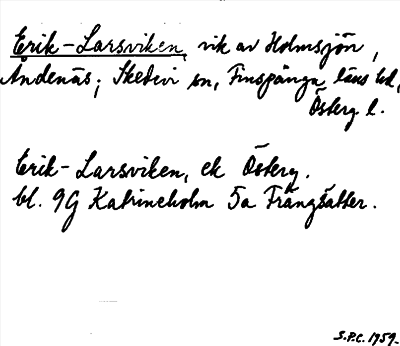 Erik-Larsviken, vik av Holmsjön,
Åndenäs; Skedevi sn, Finspånga läns hd,
Österg. l.
Erik-Larsviken, ek Österg.
bl. 9G Katrineholm 5a Frängsätter.
S.P.C. 1959.